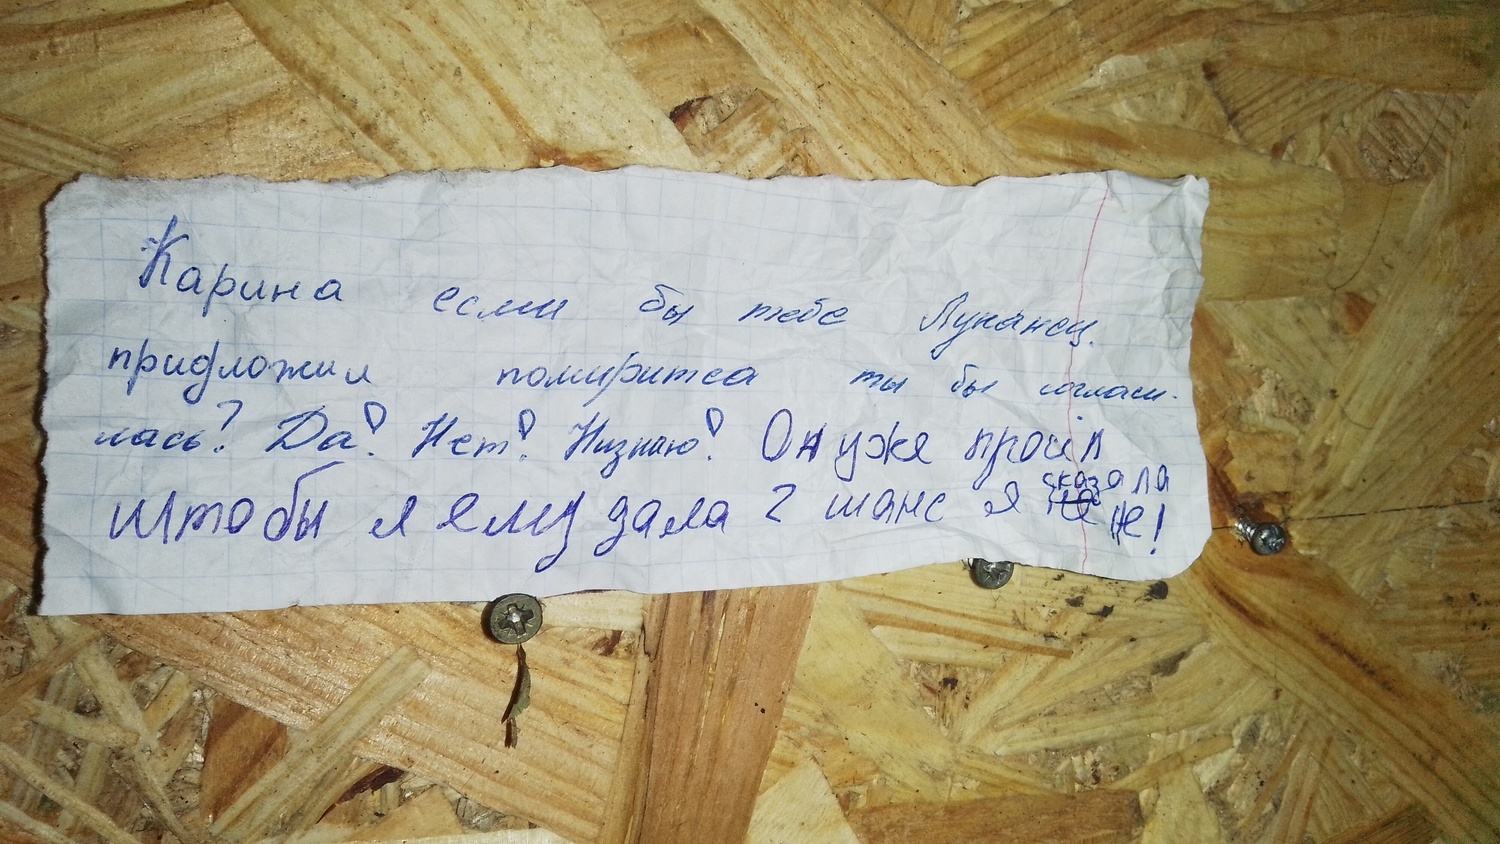 Карина если бы тебе Луканец.
придложил помиритса ты бы соглаш-
лась? Да? Нет? Низнаю? Он уже просіл
штобы я ему дала 2 шанс я сказала
не!